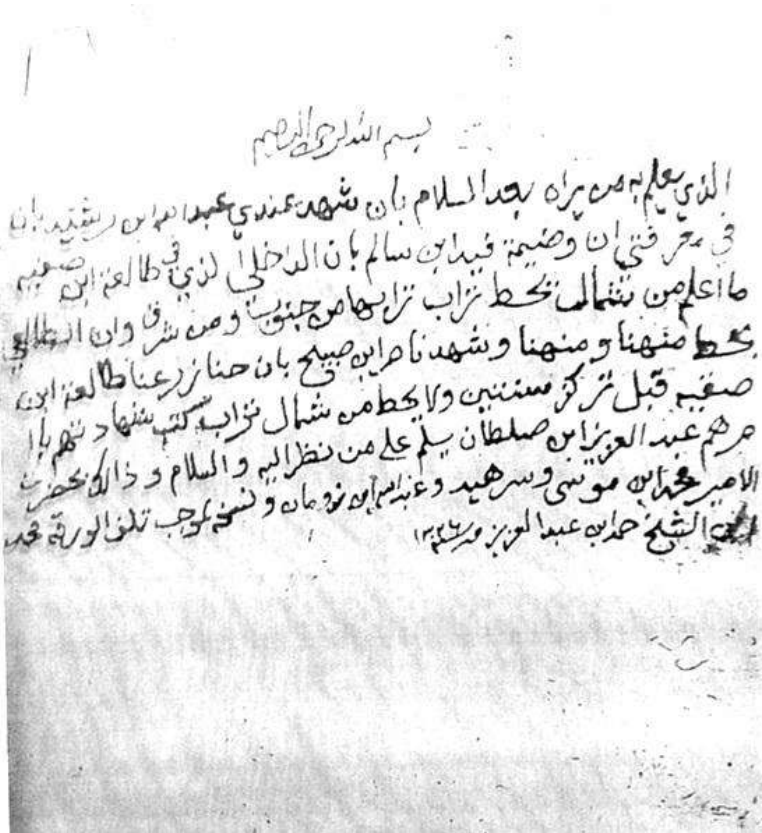 بسم الله الرحمن الرحيم
الذي يعلم به من يراه بعد السلام بان شهد عندي عبدالله ابن رشيد بان
في معرفتي ان وضيمة فيد ابن سالم بان الداخلي الذي في طالعة ابن صقيه
ما اعلم من شمال يحط تراب ترابها من جنوب ومن شرق وان الطالعي
يحط منهنا ومنهنا وشهد ناصر ابن صبيح بان حنا زرعنا طالعة ابن
صقيه قبل تركز سنتين ولا يحط من شمال تراب كتب شهادتهم بامرهم
عبد العزيز ابن صلطان يسلم على من نظر اليه والسلام وذالك بحضرت
الامير محمد ابن موسى وسرهيد وعبدالله ابن نومان ونسخه بموجب تلف الورقة محمد
ابن الشيخ حمد ابن عبد العزيز ١٣٣٦